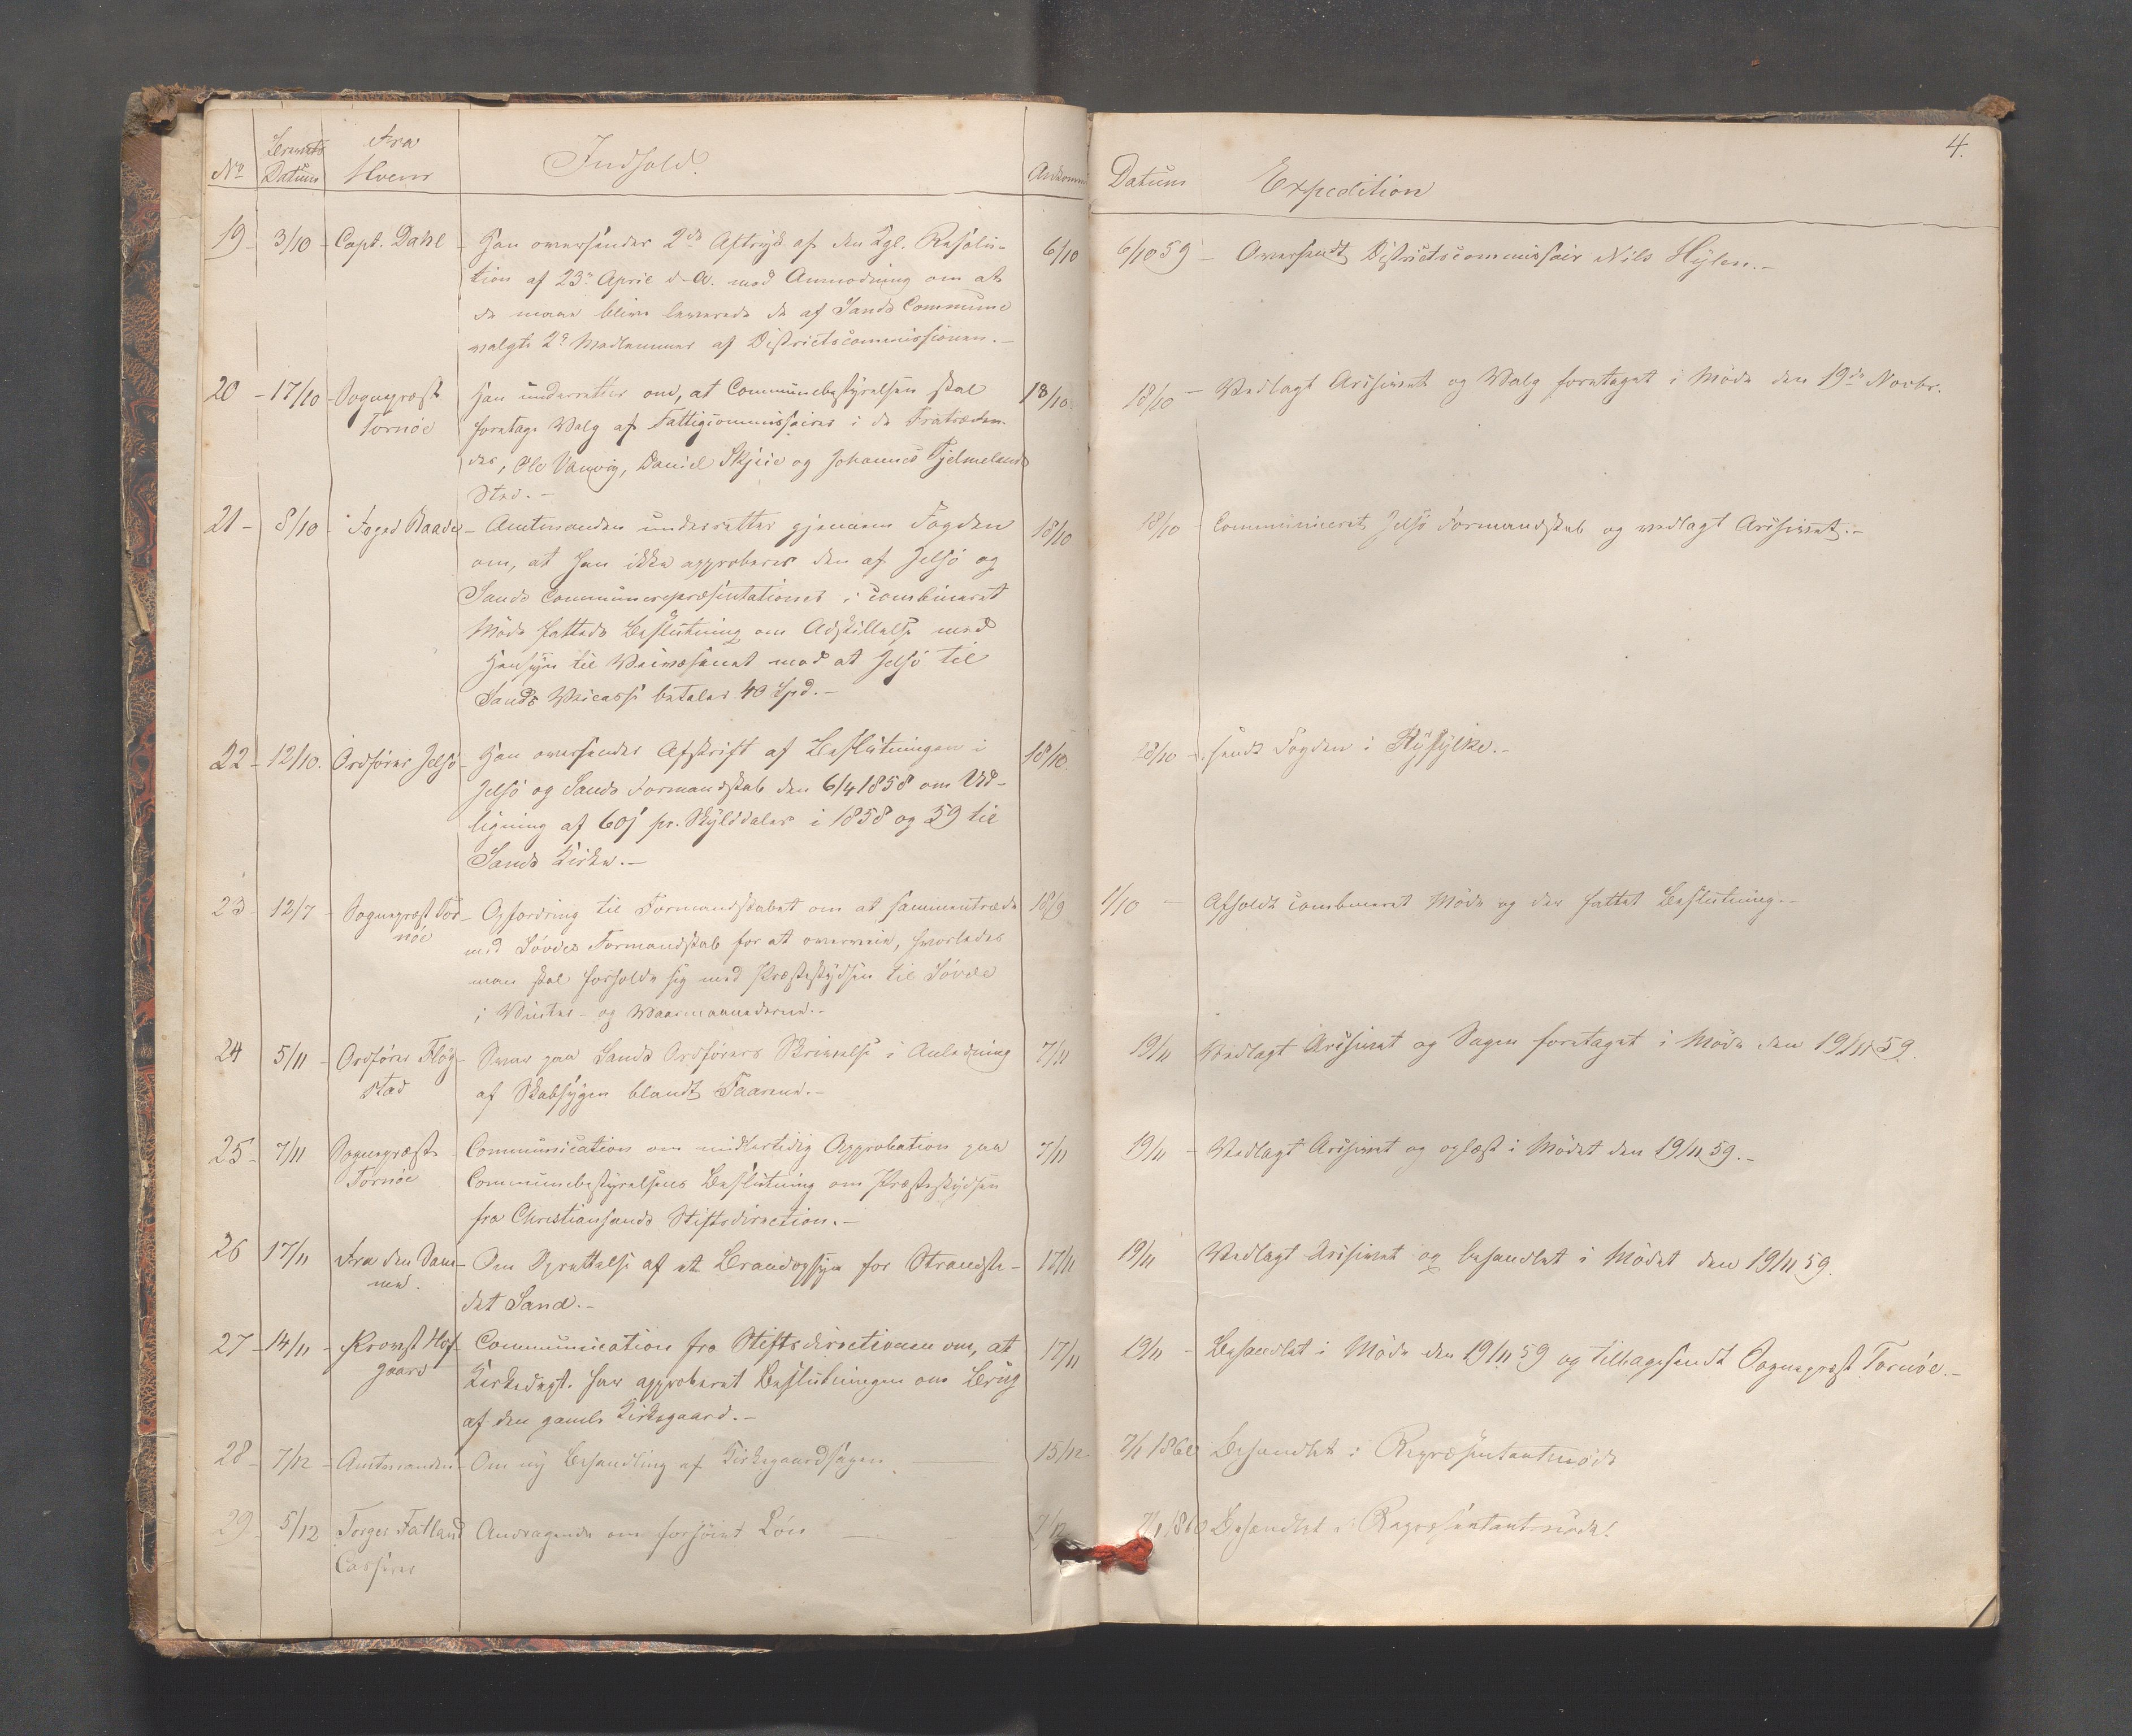 4.
No
Brevets
Datum
Fra
Hvem
Indhold.
Ankomm
Datum
Expedition
19 - 3/10 - Capt. Dahl - Han oversender 2de Aftryk af den Kgl. Resolu-
tion af 23de April d. A. med Anmodning om at
de maae blive leverede de af Sands Commune
valgte 2de Medlemmer af Districtscommissionen. -
6/10
6/10 59 - Oversendt Districtscommissair Nils Hylen. -
20 - 17/10 - Sognepræst
Tornöe
Han underretter om, at Communebestyrelsen skal
foretage Valg af Fattigcommissairer i de Fratræden-
des, Ole Vanvig, Daniel Skjeie og Johannes Tjelmelands
Sted. -
18/10.
18/10 - Vedlagt Archivet og Valg foretaget i Möde den 19de Novbr.
21 - 8/10 - Foged Baade - Amtmanden underretter gjennem Fogden
om, at han ikke approberer den af Jelsö og
Sands Communerepræsentationer i combineret
Möde fattede Beslutning om Adskillelse med
Hensyn til Veivæsenet mod at Jelsö til
Sands Veicasse betaler 40 Spd. -
18/10
18/10 - Communiceret Jelsö Formandskab og vedlagt Archivet. -
22 - 12/10. Ordförer Jelsö - Han oversender Afskrift af Beslutningen i
Jelsö og Sands Formandskab den 6/4 1858 om Ud-
ligning af 60 ß pr. Skylddaler i 1858 og 59 til
Sands Kirke. -
18/10.
18/10 - sendt Fogden i Ryfylke. -
23 - 12/7 - Sognepræst Tor-
nöe
Opfordring til Formandskabet om at sammentræde
med Sövdes Formandskab for at overveie, hvorledes
man skal forholde sig med Præsteskydsen til Sövde
i Vinter- og Vaarmaanederne. -
18/9
1/10 - Afholdt combineret Möde og der fattet Beslutning. -
24 5/11 - Ordförer Flög-
stad
Svar paa Sands Ordförers Skrivelse i Anledning
af Skabsygen blandt Faarene. -
7/11
19/11 Vedlagt Archivet og Sagen foretaget i Möde den 19/11 59.
25 - 7/11 Sognepræst
Tornöe
Communication om midlertidig Approbation paa
Communebestyrelsens Beslutning om Præsteskydsen
fra Christiansands Stiftsdirection. -
7/11
19/11 - Vedlagt Archivet og oplæst i Mödet den 19/11 59. -
26 17/11 Fra den Sam-
me.
Om Oprettelse af et Brandopsyn for Strandste-
det Sand. -
17/11
19/11 Vedlagt Archivet og behandlet i Mödet den 19/11 59.
27 - 14/11 - Provst Hof-
gaard
Communication fra Stiftsdirectionen om, at
Kirkedept. har approberet Beslutningen om Brug
af den gamle Kirkegaard. -
17/11
19/11 - Behandlet i Möde den 19/11 59 og tilbagesendt Sognepræst Tornöe. -
28 - 7/12 - Amtmanden - Om ny Behandling af Kirkegaardsagen
15/12
7/1 1860 Behandlet i Repræsentantmöde
29 - 5/12 Torger Fatland
Casserer
Andragende om forhöiet Lön
7/12
7/1 1860 Behandlet i Repræsentantmöde.